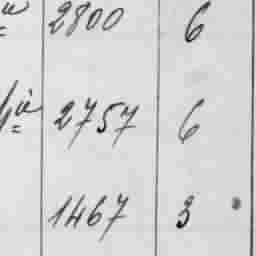 2800 6
2757 6
1467 3